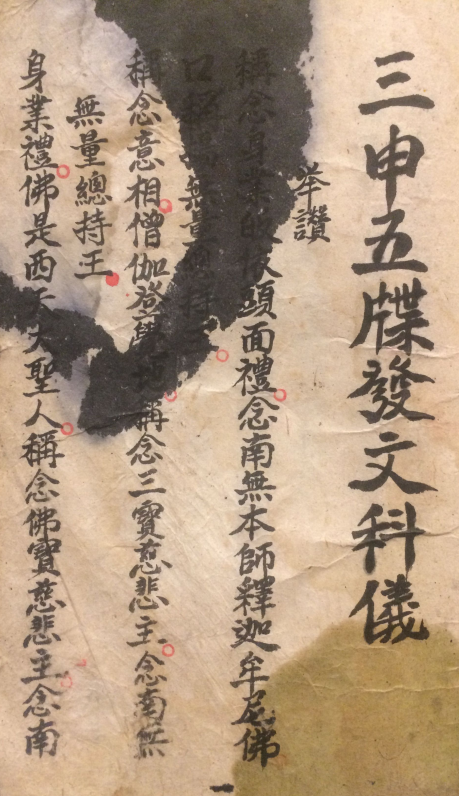 三申五牒發文科儀
舉讚
稱念身業皈依頭面禮念南無本師釋迦牟尼佛
口稱 無量總持王
稱念意相僧伽登學地稱念三寶慈悲主念南無
無量總持王
身業禮佛是西天大聖人稱念佛寶慈悲主念南